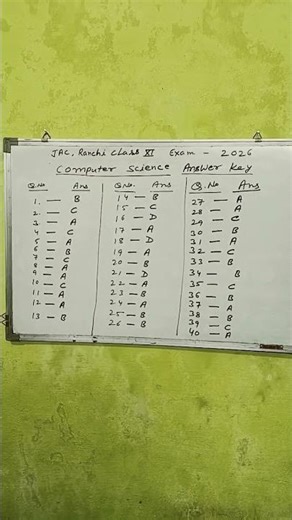 JAC, Ranchi Class XI Exam - 2026
Computer Science Answer Key
Q.No Ans
1. — B
2. — C
3. — A
4. — C
5 — A
6 — B
7 — C
8 — A
9 — A
10 — C
11 — A
12 — A
13 — B
Q.No. Ans
14 — B
15 — C
16 — D
17 — A
18 — D
19 — A
20 — B
21 — D
22 — A
23 — B
24 — A
25 — B
26 — B
Q.No Ans
27 — A
28 — A
29 — C
30 — B
31 — A
32 — C
33 — B
34 — B
35 — C
36 — B
37 — A
38 — B
39 — C
40 — A